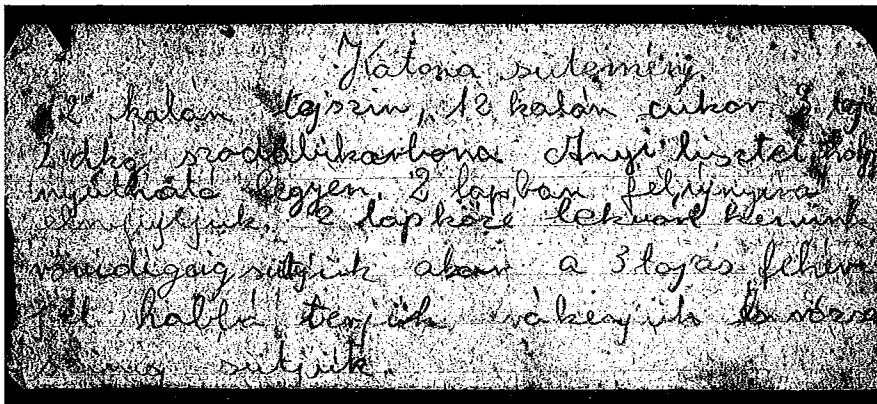 Katona sütemény.
12 kalán tejszin, 12 kalán cukor 3 toj
2 dkg szodabikarbóna Anyi lisztet, hogy
nyútható legyen, 2 lapban félújnyira
elnyujtjuk, 2 lap közé lekvárt kenünk
sütjük akor a 3 tojás fehér
fel habbá verjük, rákenjük és
sütjük.